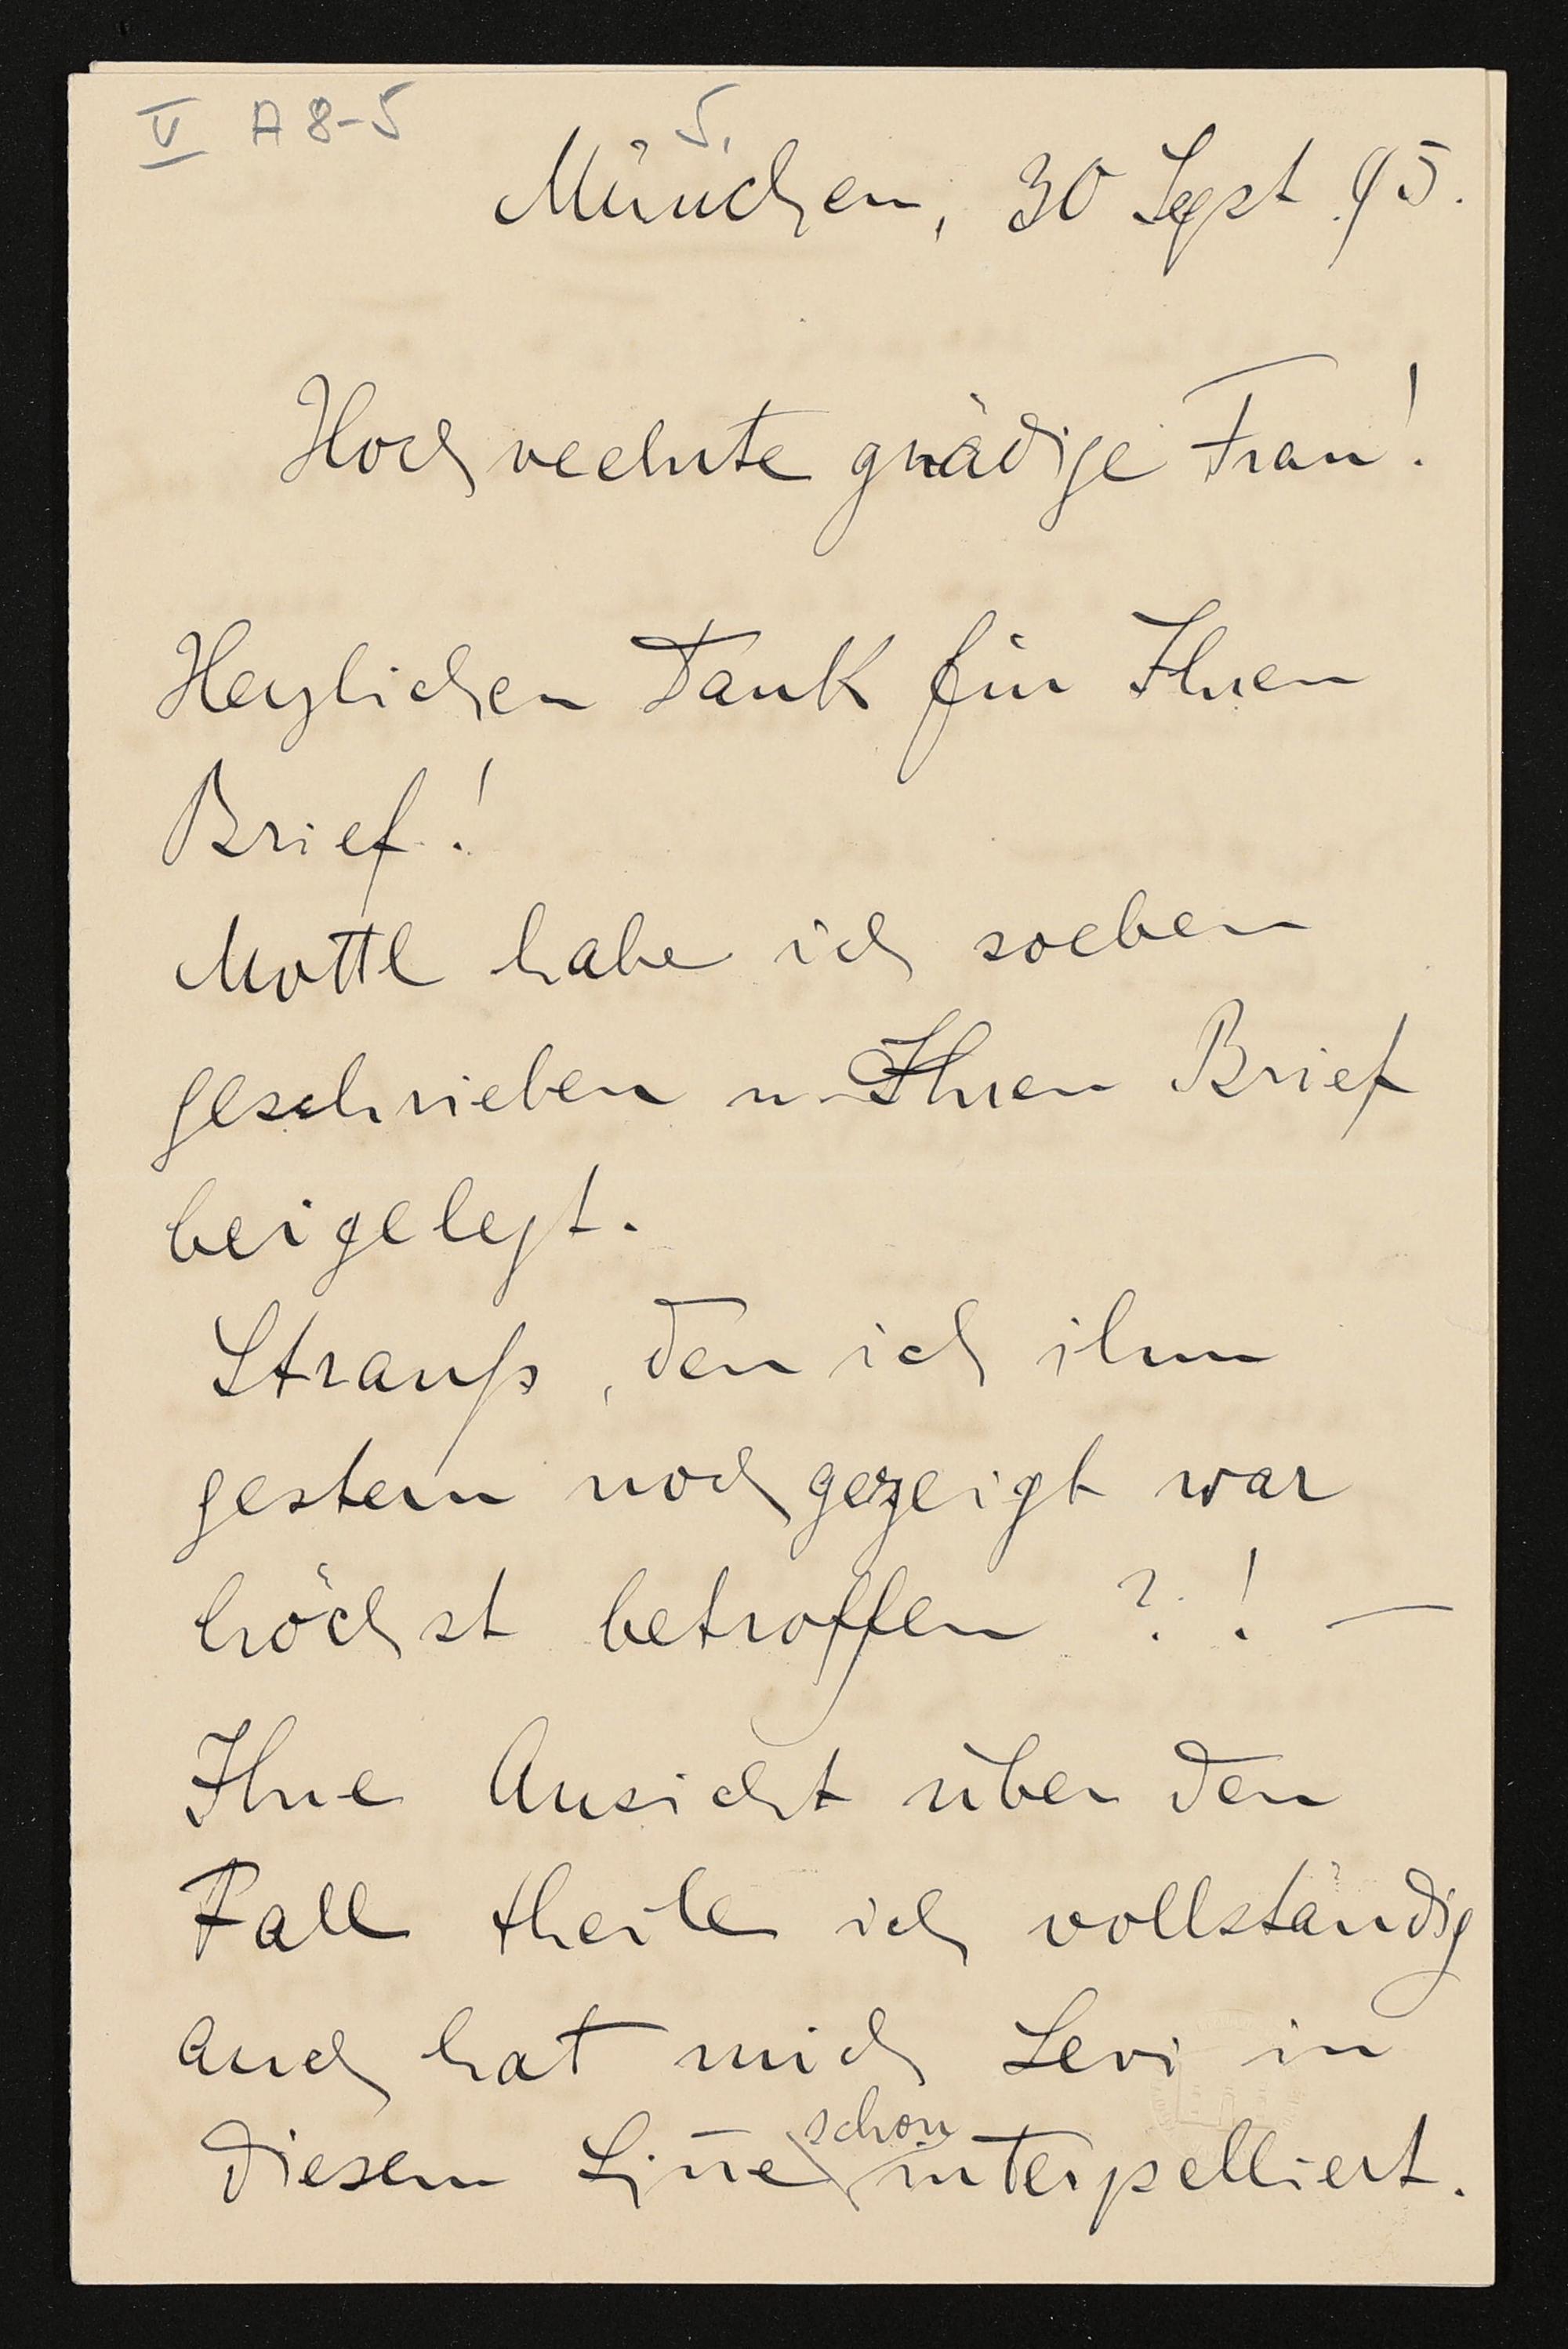 V A 8-5
5.
München, 30 Sept. 95.
Hochverehrte gnädige Frau!
Herzlichen Dank für Ihren
Brief!
Mottl habe ich soeben
geschrieben u. Ihren Brief
beigelegt.
Strauß, den ich ihm
gestern noch gezeigt war
höchst betroffen?! —
Ihre Ansicht über den
Fall theile ich vollständig
auch hat mich Levi in
schon
diesem Sin̄e interpelliert.